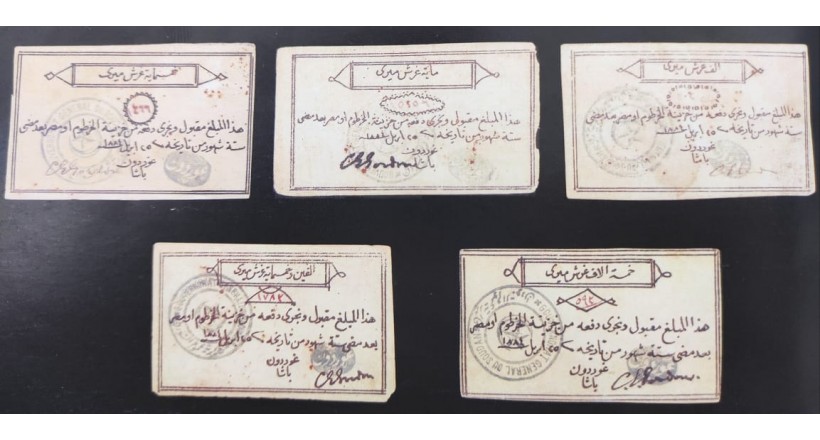 خمسماية غرش ميرى
٤٦٦
هذا المبلغ مقبول ونجرى دفعه من خزينة الخرطوم او مصر بعد مضى
ستة شهور من تاريخه ٢٥ ابريل ١٨٨٤
غوردون
باشا
ماية غرش ميرى
هذا المبلغ مقبول ونجرى دفعه من خزينة الخرطوم او مصر بعد مضى
ستة شهور من تاريخه ٢٥ ابريل ١٨٨٤
غوردون
باشا
C G Gordon
الف غرش ميرى
هذا المبلغ مقبول ونجرى دفعه من خزينة الخرطوم او مصر بعد مضى
ستة شهور من تاريخه ٢٥ ابريل ١٨٨٤
غوردون
باشا
الفين وخمسماية غرش ميرى
١٧٨٢
هذا المبلغ مقبول ونجرى دفعه من خزينة الخرطوم او مصر
بعد مضى ستة شهور من تاريخه ٢٥ ابريل ١٨٨٤
غوردون
باشا
C G Gordon
خمسة الاف غرش ميرى
٥٩٢
هذا المبلغ مقبول ونجرى دفعه من خزينة الخرطوم او مصر
بعد مضى ستة شهور من تاريخه ٢٥ ابريل ١٨٨٤
غوردون
باشا
C G Gordon
GENERAL DU SOUDAN